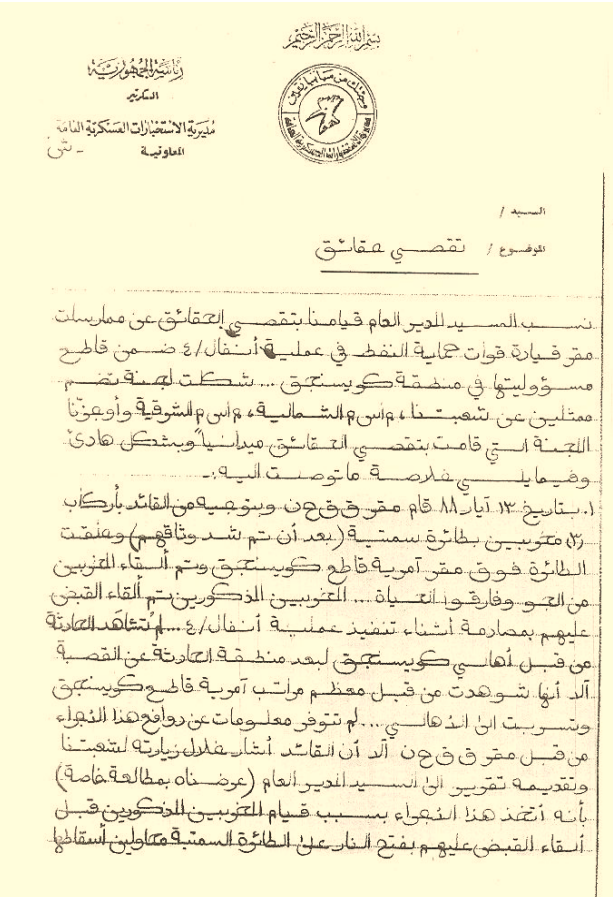 بسم الله الرحمن الرحيم
رئاسة الجمهورية
السكرتير
مديرية الاستخبارات العسكرية العامة
المعاونية
السيد /
الموضوع / تقصي حقائق
نسب السيد المدير العام قيامنا بتقصي الحقائق عن ممارسات
مقر قيادة قوات حماية النفط في عملية أنفال/٤ ضمن قاطع
مسؤوليتها في منطقة كويسنجق ... شكلت لجنة تضم
ممثلين عن شعبتنا ، م اس م الشمالية ، م اس م الشرقية وأوعزنا
اللجنة التي قامت بتقصي الحقائق ميدانيا" وبشكل هادئ
وفيما يلي خلاصة ما توصلت اليه :-
١. بتاريخ ١٣ آيار ٨٨ قام مقر ق ق ح ن وبتوجيه من القائد بأركاب
(٣) مخربين بطائرة سمتية (بعد أن تم شد وثاقهم) وحلقت
الطائرة فوق مقر آمرية قاطع كويسنجق وتم ألقاء المخربين
من الجو وفارقوا الحياة ... المخربين المذكورين تم ألقاء القبض
عليهم بمصادمة أثناء تنفيذ عملية أنفال/٤ .... لم تشاهد الحادثة
من قبل أهالي كويسنجق لبعد منطقة الحادثة عن القصبة
ألا أنها شوهدت من قبل معظم مراتب آمرية قاطع كويسنجق
وتسربت الى الاهالي .... لم تتوفر معلومات عن دوافع هذا الاجراء
من قبل مقر ق ق ح ن ألا أن القائد أشار خلال زيارته لشعبتنا
وتقديمه تقرير الى السيد المدير العام (عرضناه بمطالعة خاصة)
بأنه أتخذ هذا الاجراء بسبب قيام المخربين المذكورين قبل
ألقاء القبض عليهم بفتح النار على الطائرة السمتية محاولين أسقاطها